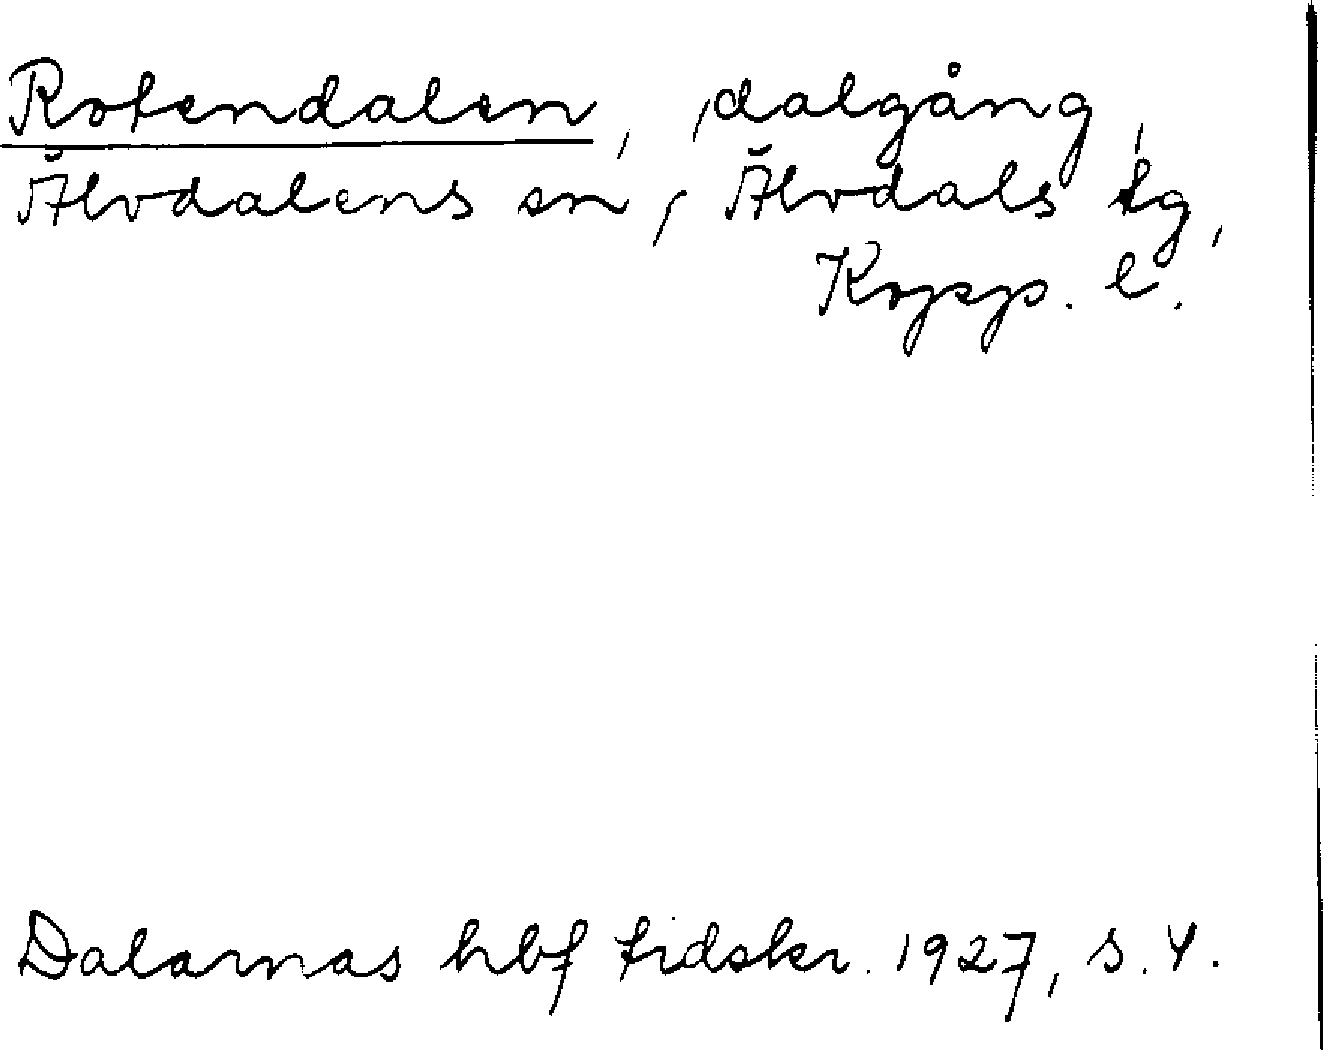 Rotendalen, dalgång,
Älvdalens sn, Älvdals tg,
Kopp. l.
Dalarnas hbf tidskr. 1927, s. 4.